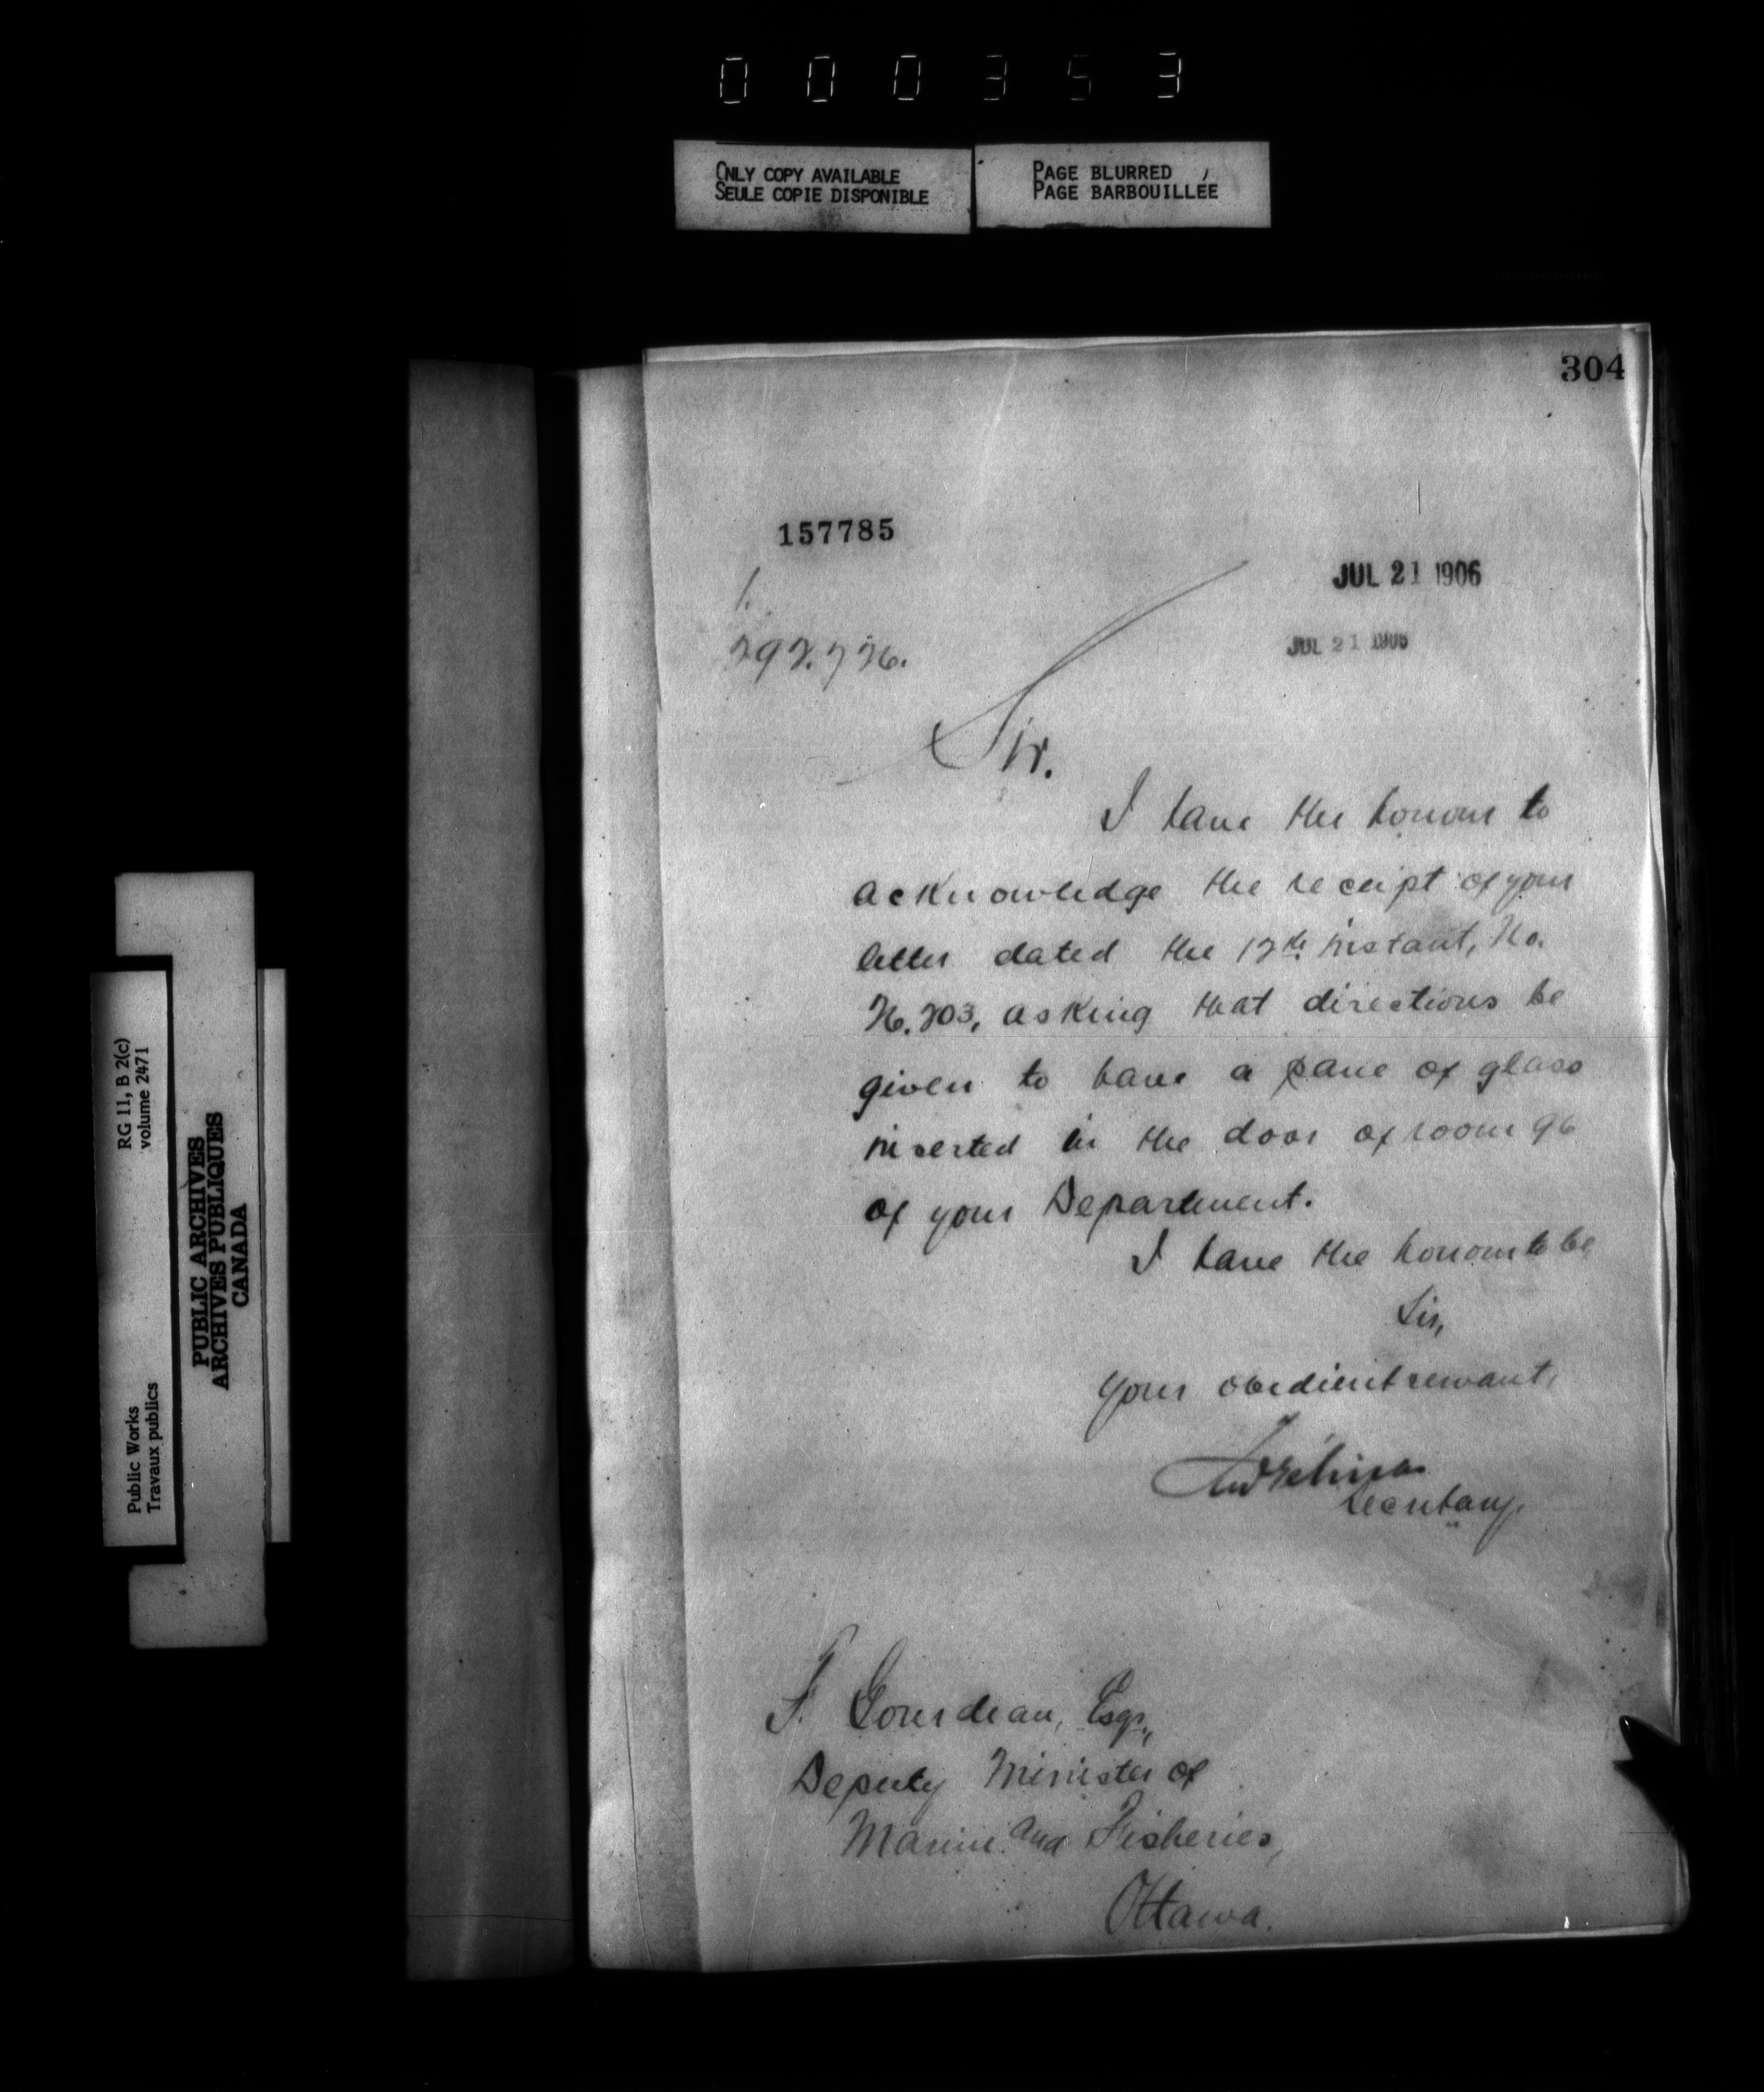 000353
ONLY COPY AVAILABLE
SEULE COPIE DISPONIBLE
PAGE BLURRED
PAGE BARBOUILLÉE
304
157785
JUL 21 1906
JUL 21 1906
Sir.
I have the honour to
acknowledge the receipt of your
letter dated the instant, No.
asking that directions be
given to have a pane of glass
inserted in the door of room 96
of your Department.
I have the honour to be
Sir,
Your obedient servant,
Secretary.
F. Gourdeau, Esqr.,
Deputy Minister of
Marine and Fisheries,
Ottawa.
RG 11, B 2(c)
volume 2471
Public Works
Travaux publics
PUBLIC ARCHIVES
ARCHIVES PUBLIQUES
CANADA